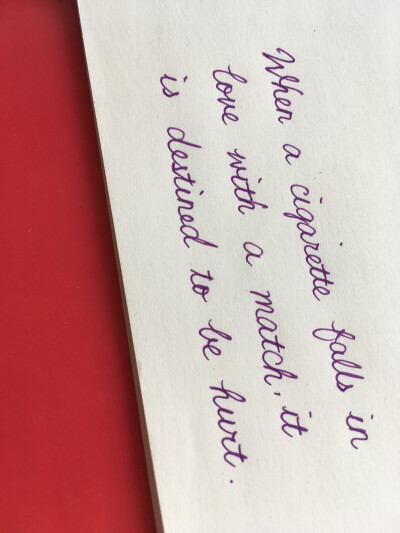 When a cigarette falls in
love with a match, it
is destined to be hurt.